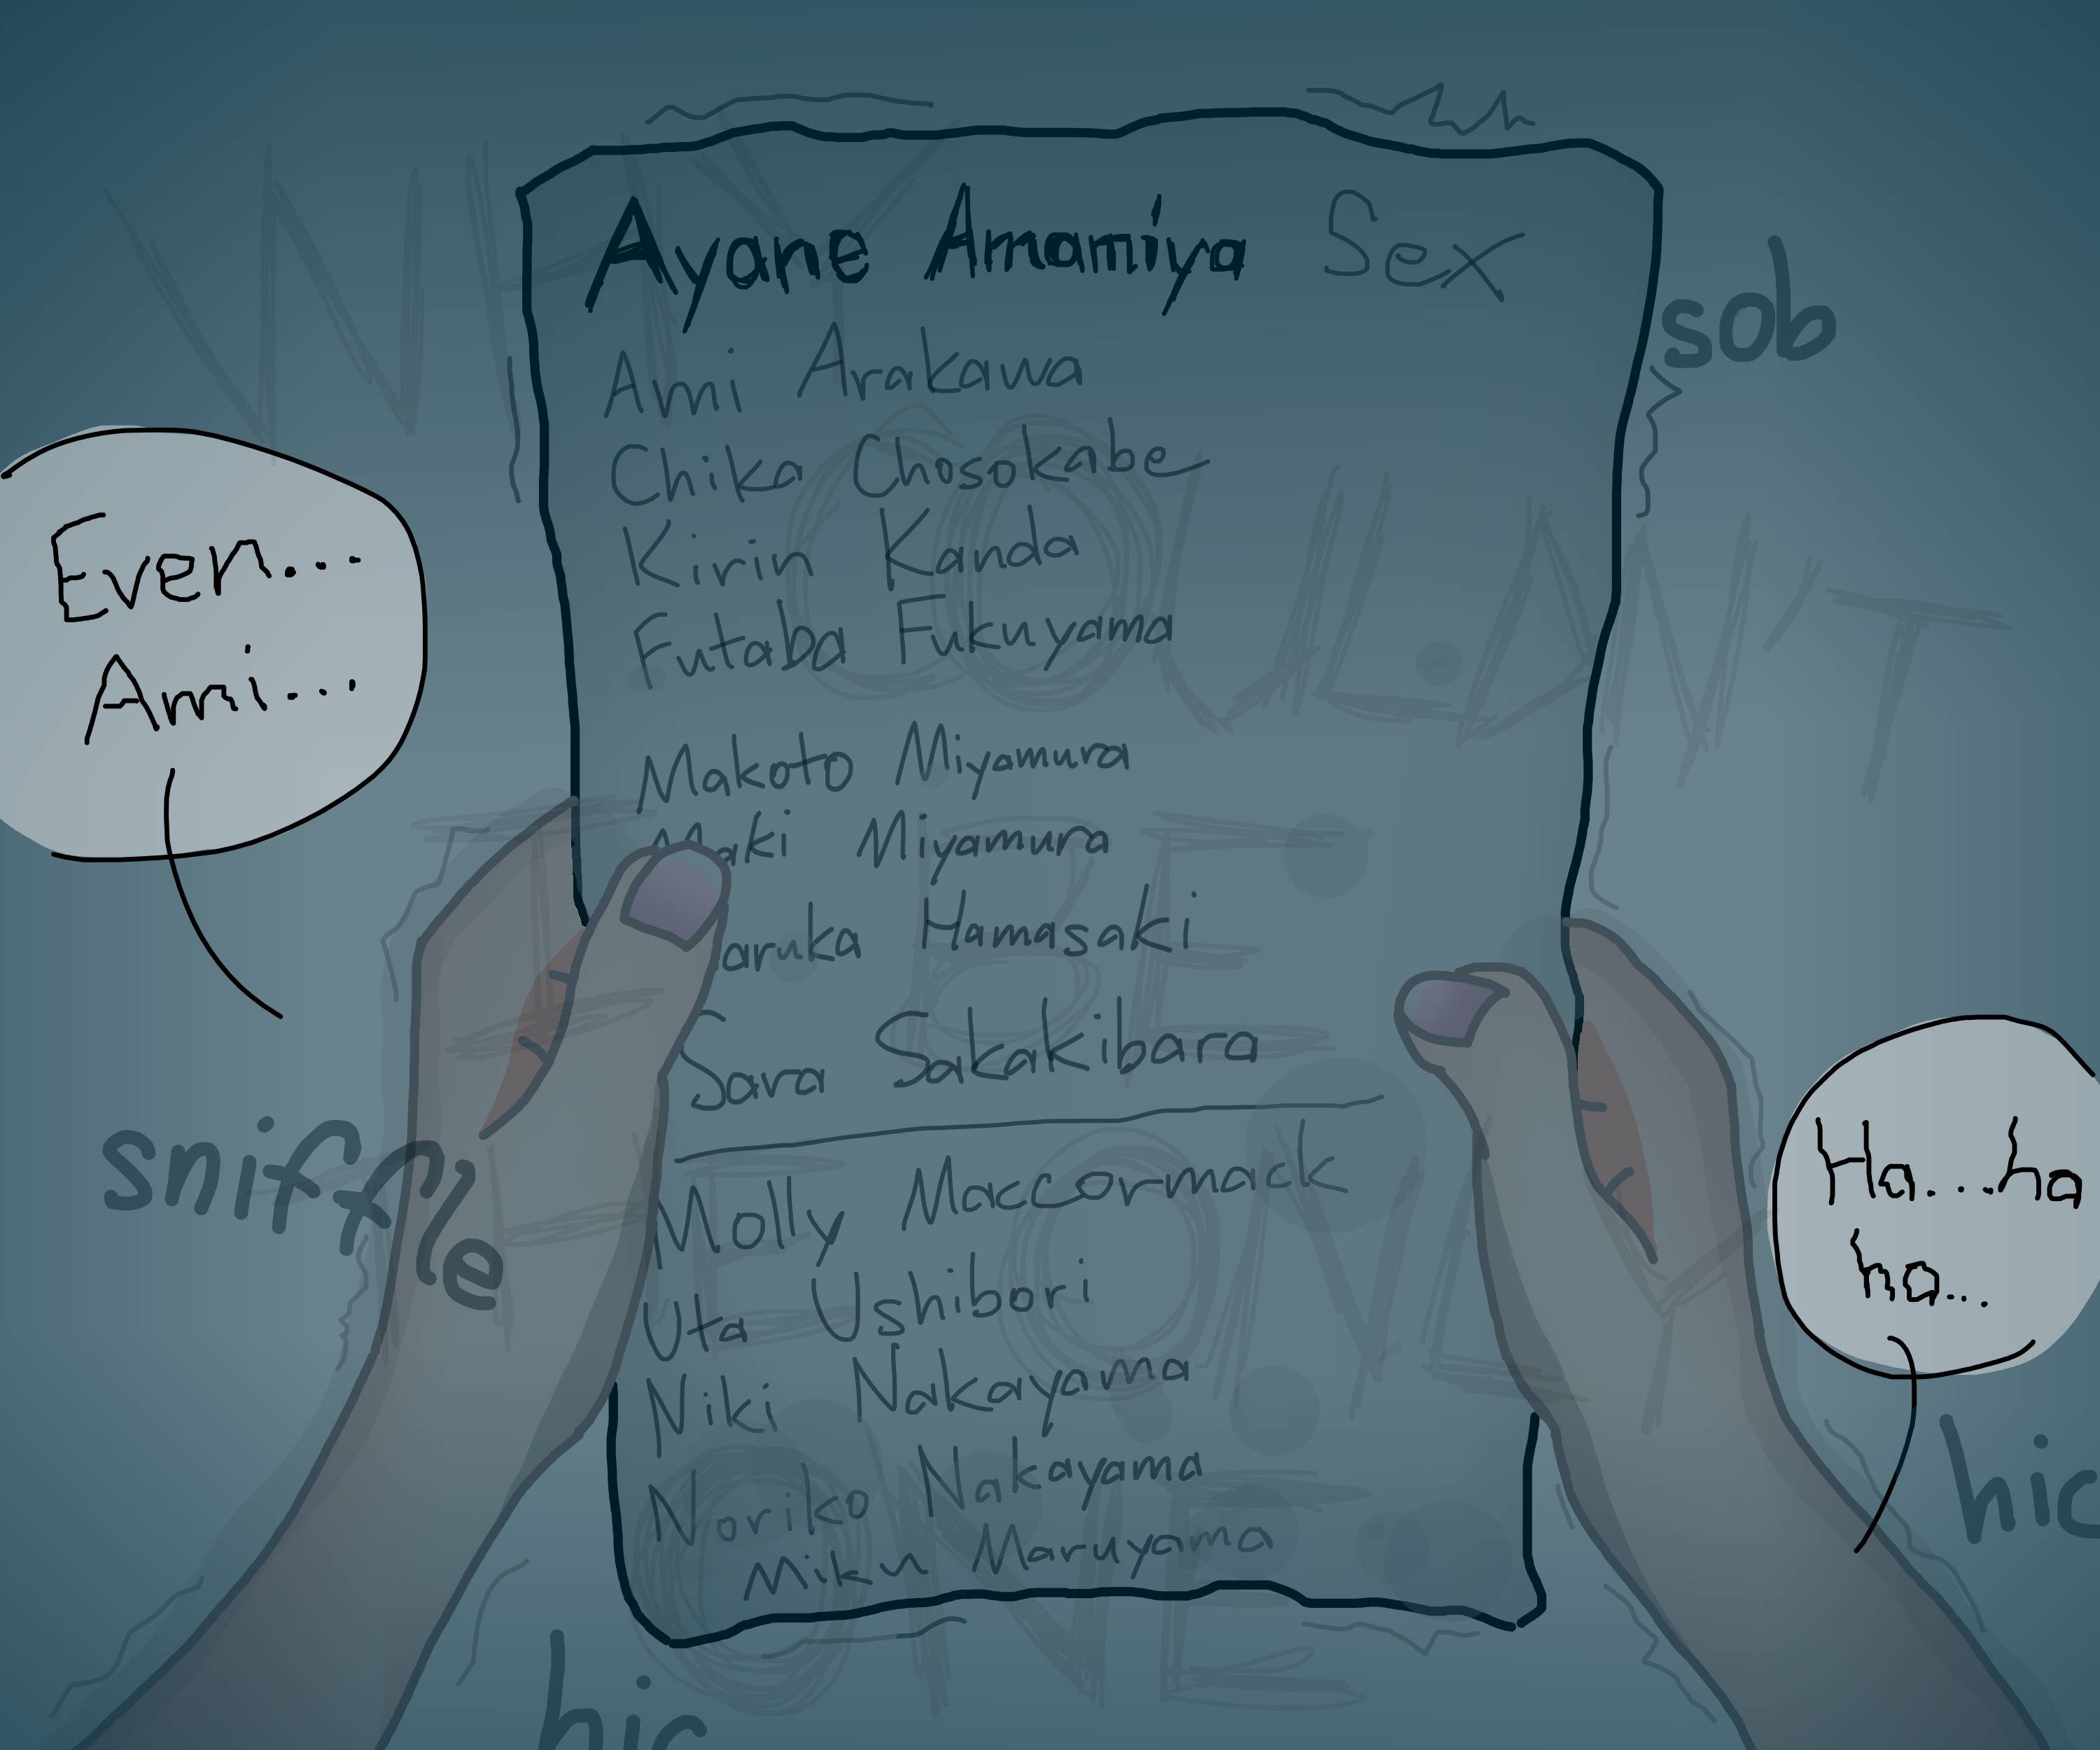 WHY
Ayane Amamiya Sex
sob
Ami Arakawa
Chika Chosokabe
COULDN'T
Kirin Kanda
Even...
Ami...
Futaba Fukuyama
Makoto Miyamura
Maki Miyamura
I BE
aruka Hamasaki
Sara Sakakibara
sniffle
Molly Maccormack
Ha...ha
ha...
THE ONLY
Uta Ushibori
Niki Nakayama
hic
Noriko Nakayama
Miku Maruyama
ONE
hic